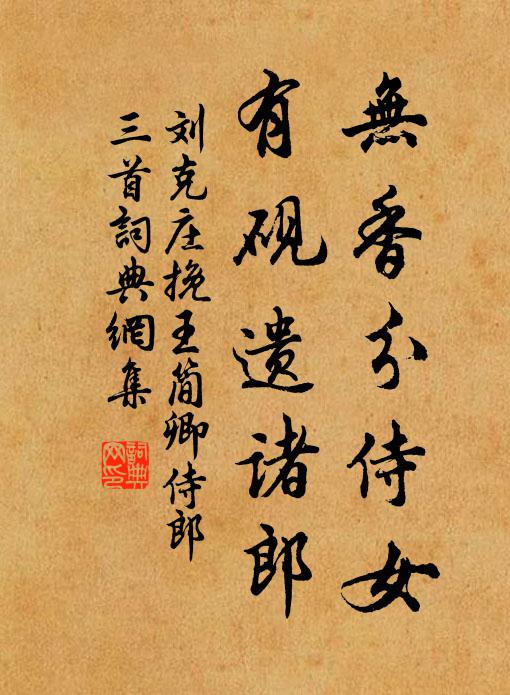 無香分侍女
有砚遗诸郎
刘克庄挽王简卿侍郎
三首詞典網集
詞典
网印